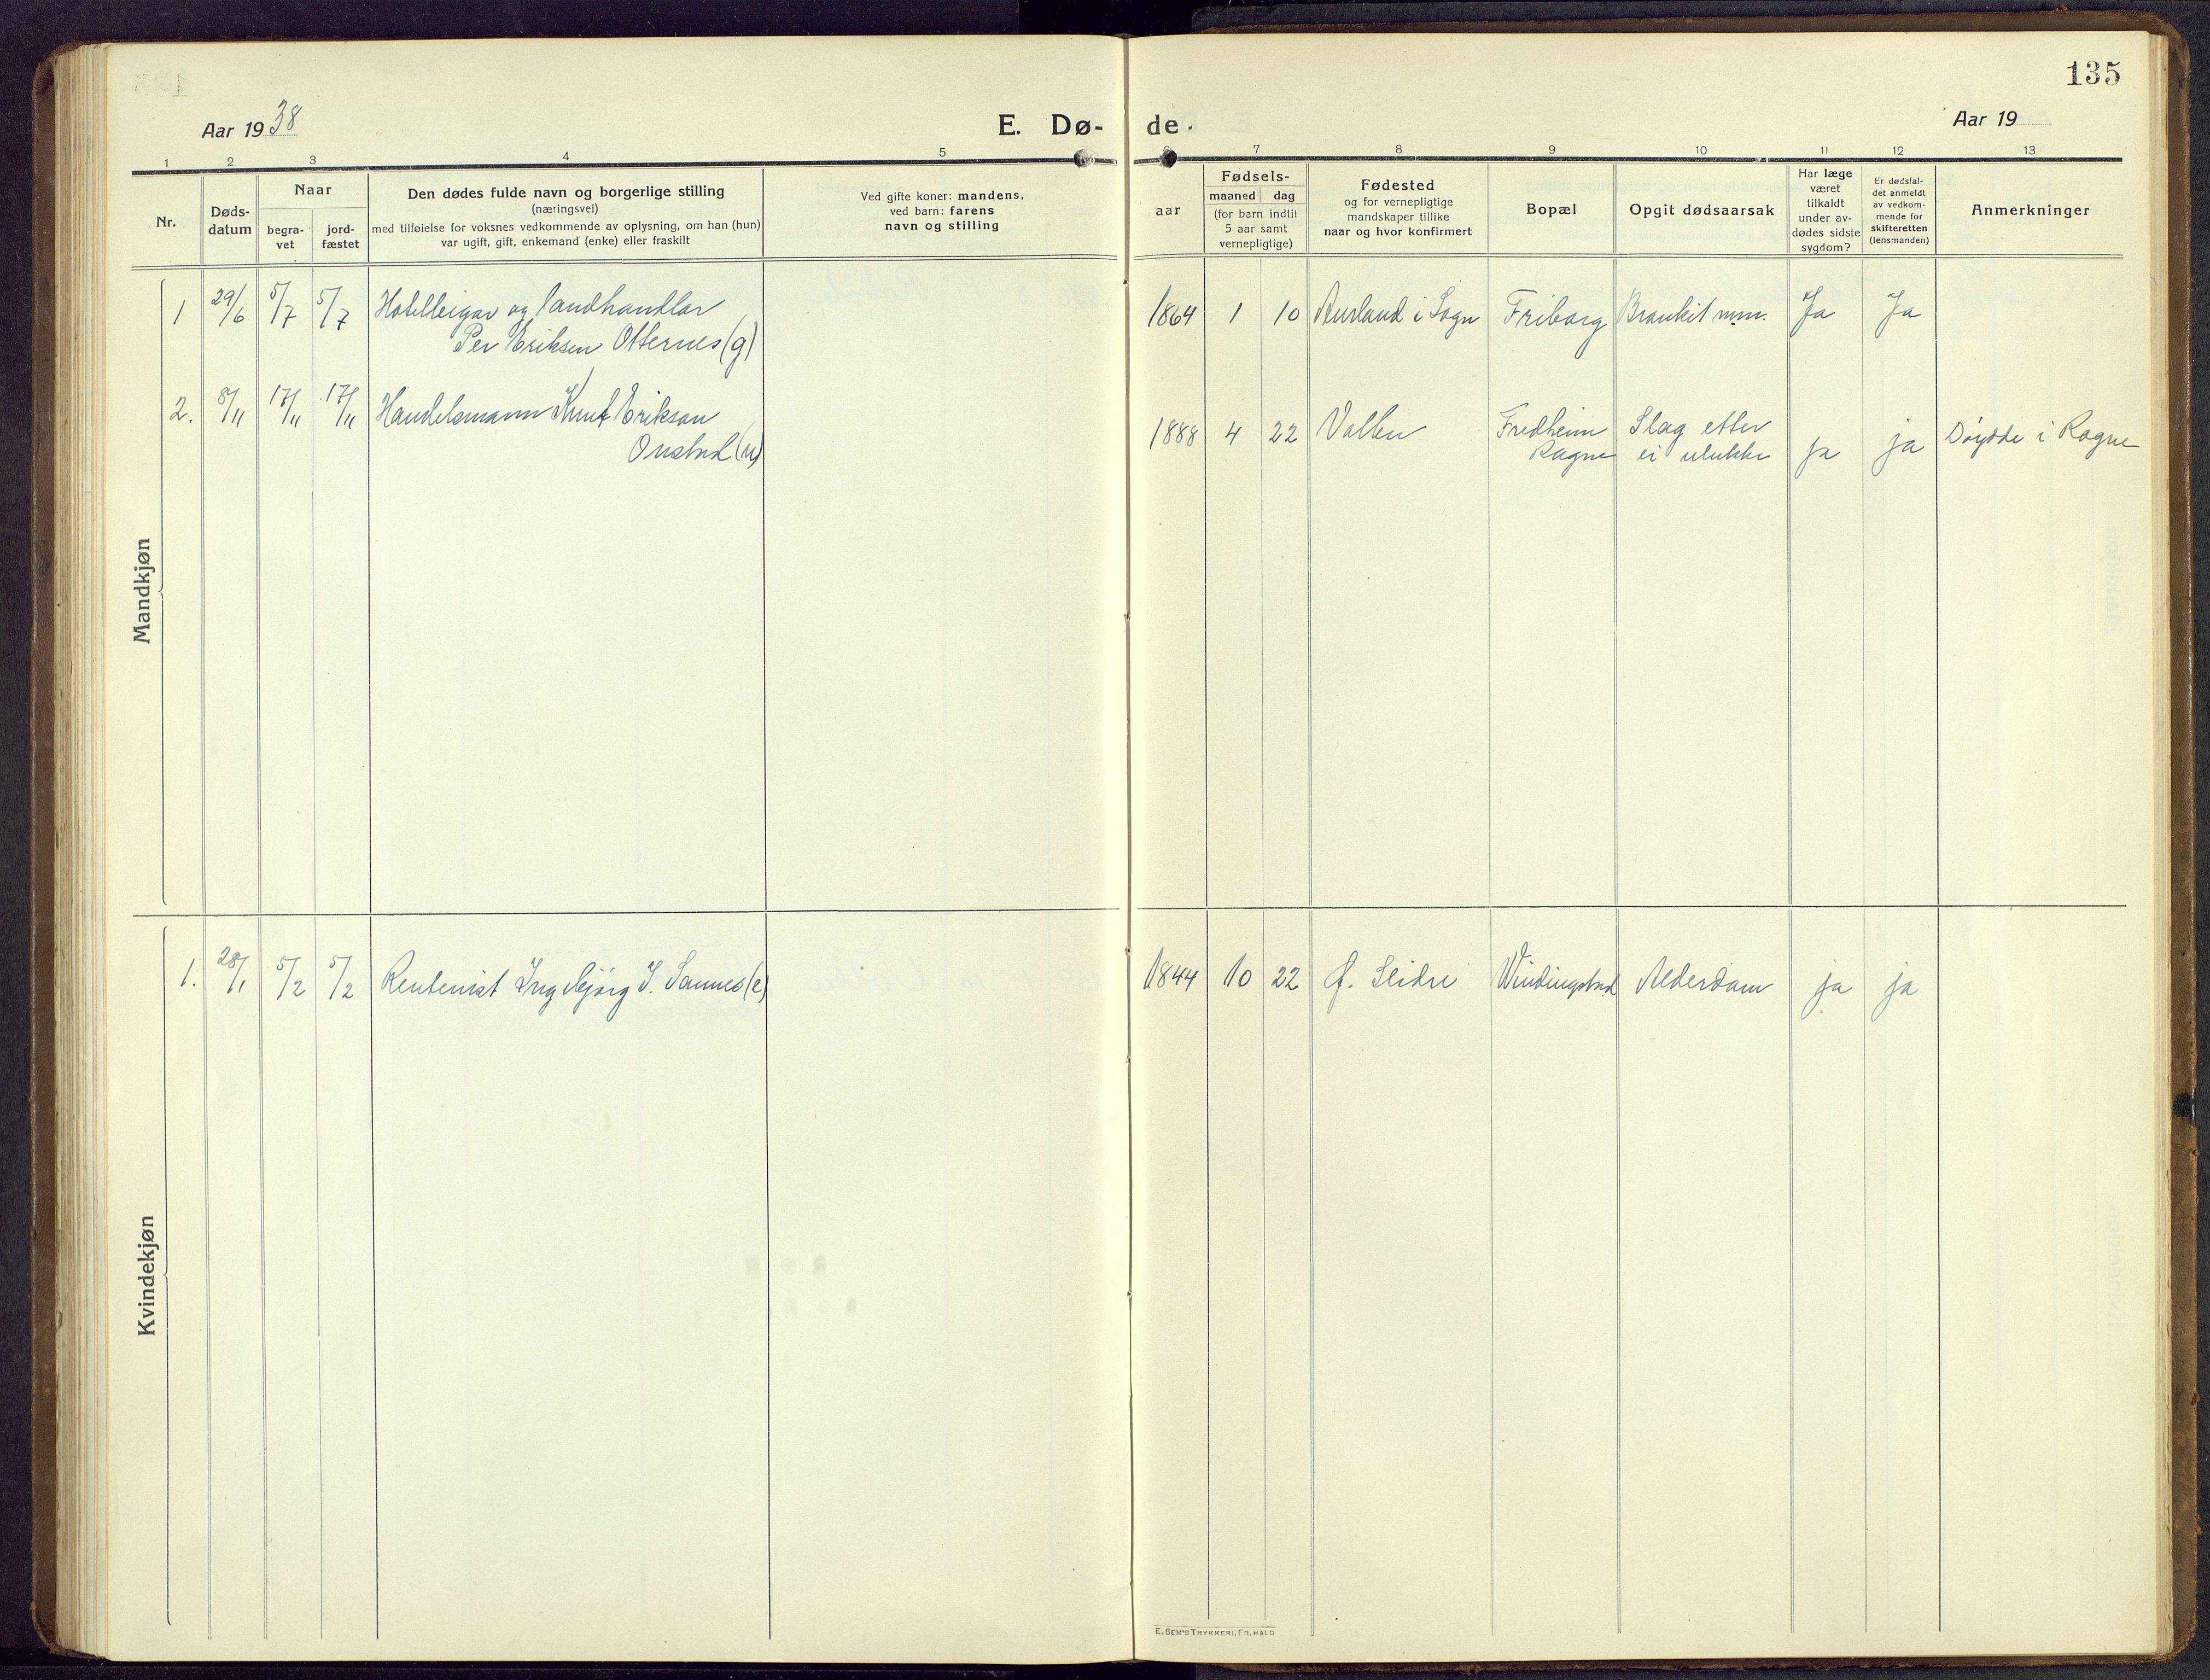 135
Aar 1938
E. Dø-
de.
Aar 19
1 2 3 4 5
6 7 8 9 10 11 12 13
Nr.
Døds-
datum
Naar
begra-
vet
jord-
fæstet
Den dødes fulde navn og borgerlige stilling
(næringsvei)
med tilføielse for voksnes vedkommende av oplysning, om han (hun)
var ugift, gift, enkemand (enke) eller fraskilt
Ved gifte koner: mandens,
ved barn: farens
navn og stilling
aar
Fødsels-
maaned dag
(for barn indtil
5 aar samt
vernepligtige)
Fødested
og for vernepligtige
mandskaper tillike
naar og hvor konfirmert
Bopæl
Opgit dødsaarsak
Har læge
været
tilkaldt
under av-
dødes sidste
sygdom?
Er dødsfal-
det anmeldt
av vedkom-
mende for
skifteretten
(lensmanden)
Anmerkninger
Mandkjøn
1 29/6 5/7 5/7 Hotelleigar og landhandlar
Per Eriksen Otternes (g)
1864 1 10 Aurland i Sogn Friborg Bronkit m.m. Ja Ja
2. 8/11 17/11 17/11 Handelsmann Knut Erikson
Onstad (u)
1888 4 22 Volbu Fredheim Slag etter ja ja Døydde i Rogne
Rogne ei ulukke
Kvindekjøn
1. 28/1 5/2 5/2 Rentenist Ingebjørg I. Sannes (e)
1844 10 22 Ø. Slidre Windingstad Alderdom ja ja
E. SEM'S TRYKKERI, FR. HALD